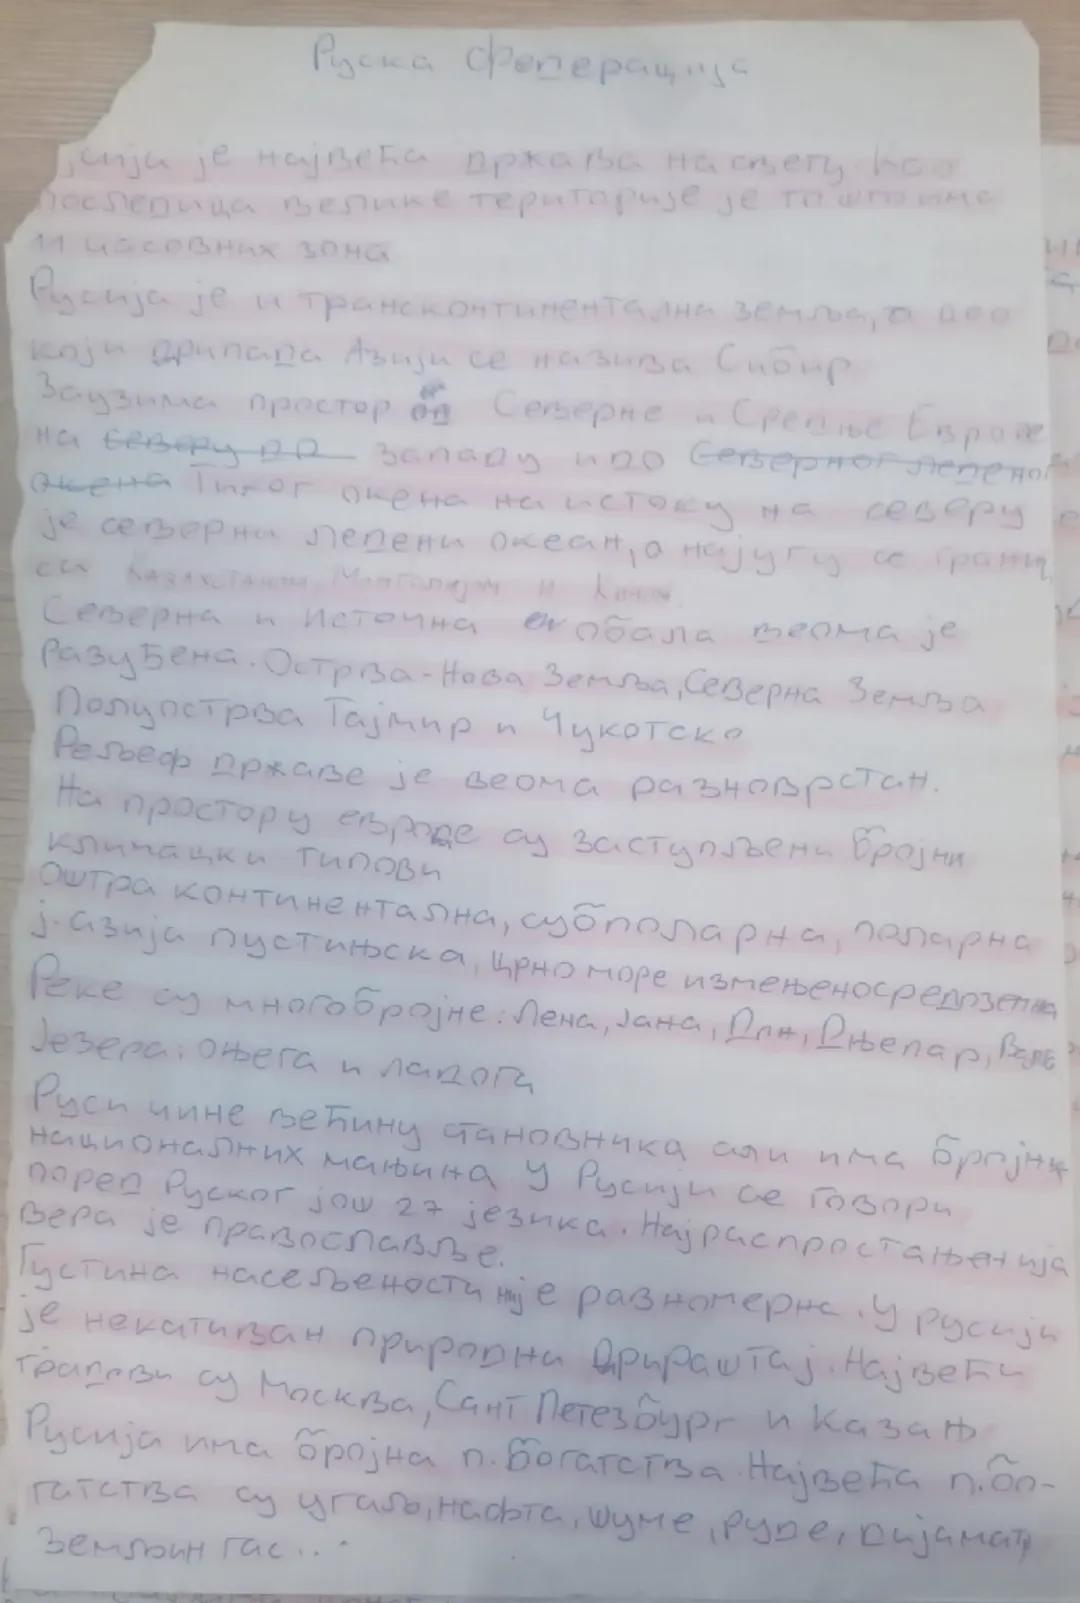 Руска Федерација
је највећа држава на свету као
последица велике територије је то што има
11 часовних зона
Русија је и трансконтинентална земља, а део
који припада Азији се назива Сибир
Заузима простор од Северне и Средње Европе
на северу до западу и до Северног леденог
океана Тихог океана на истоку на северу
је северни ледени океан, а на југу се грани
си Казахстаном, Монголијом и Кином.
Северна и источна обала веома је
разуђена. Острва - Нова Земља, Северна Земља
Полуострва Тајмир и Чукотско
Рељеф државе је веома разноврстан.
На простору европе су заступљени бројни
климацки типови
Оштра континентална, субполарна, поларна
ј. азија пустињска, црно море измењеносредоземна
Реке су многобројне: Лена, Јана, Дон, Дњепар,
Језера: Оњега и ладога
Руси чине већину становника али има бројних
националних мањина. У Русији се говори
поред Руског још 27 језика. Најраспростањенија
вера је православље.
Густина насељености није равномерна. У русији
је некативан природни прираштај. Највећи
градови су Москва, Сант Петезбург и Казањ
Русија има бројна п. богатства. Највећа п. бо-
гатства су угаљ, нафта, шуме, руде, дијаманти
земљин гас...